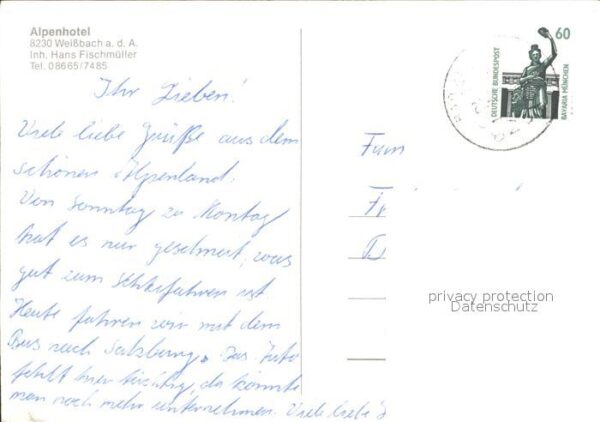 Alpenhotel
8230 Weißbach a. d. A.
Inh. Hans Fischmüller
Tel. 08665/7485
Ihr Lieben!
Viele liebe Grüße aus dem
schönen Alpenland.
Von Sonntag zu Montag
hat es nur geschneit, was
gut zum Schlifahren ist.
Heute fahren wir mit dem
Bus nach Salzburg. Das Auto
fehlt hier tüchtig, da könnte
man noch mehr unternehmen. Viele liebe
60
DEUTSCHE BUNDESPOST
BAVARIA MÜNCHEN
Fam
Fr
privacy protection
Datenschutz